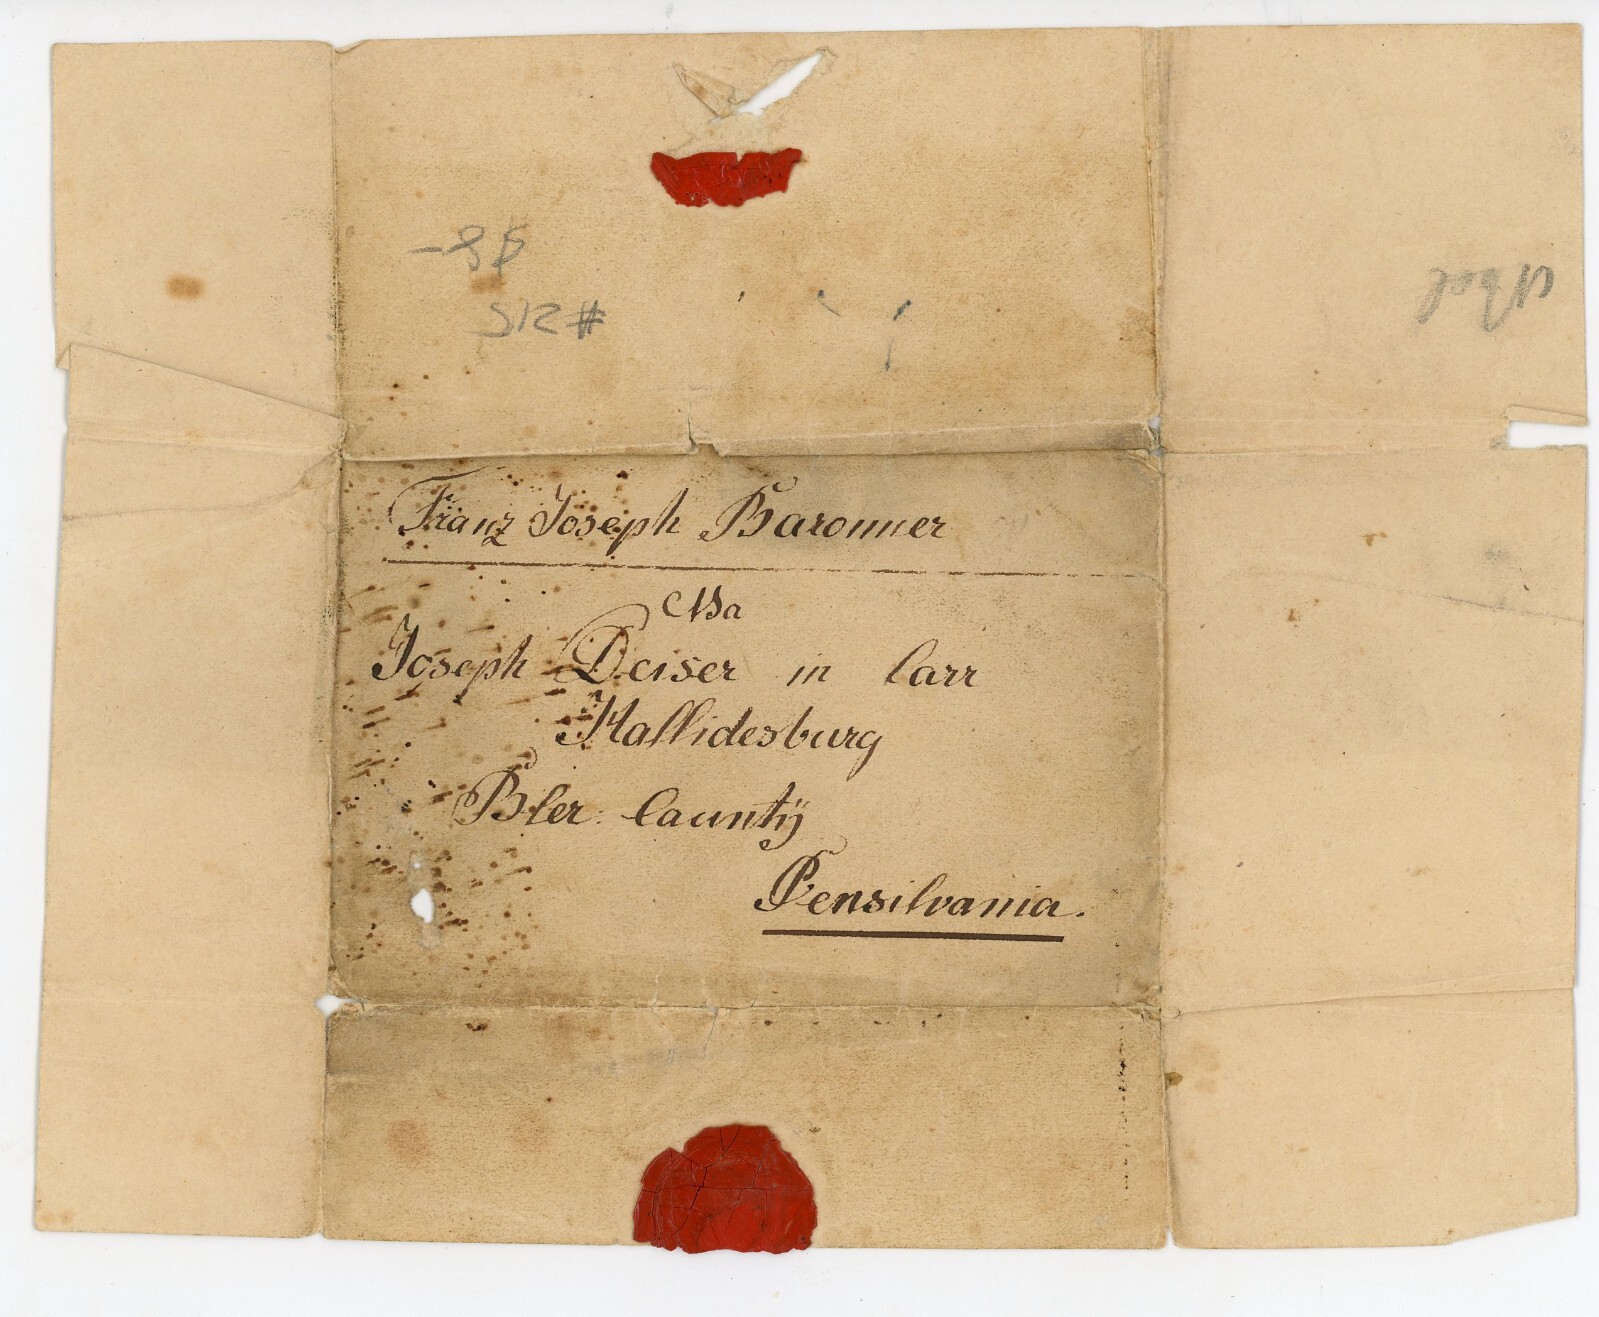 $8-
#215
Franz Joseph Baronner
Joseph Deiser in Carr
Hallidesburg
Bler: Caunty
Pensilvania.